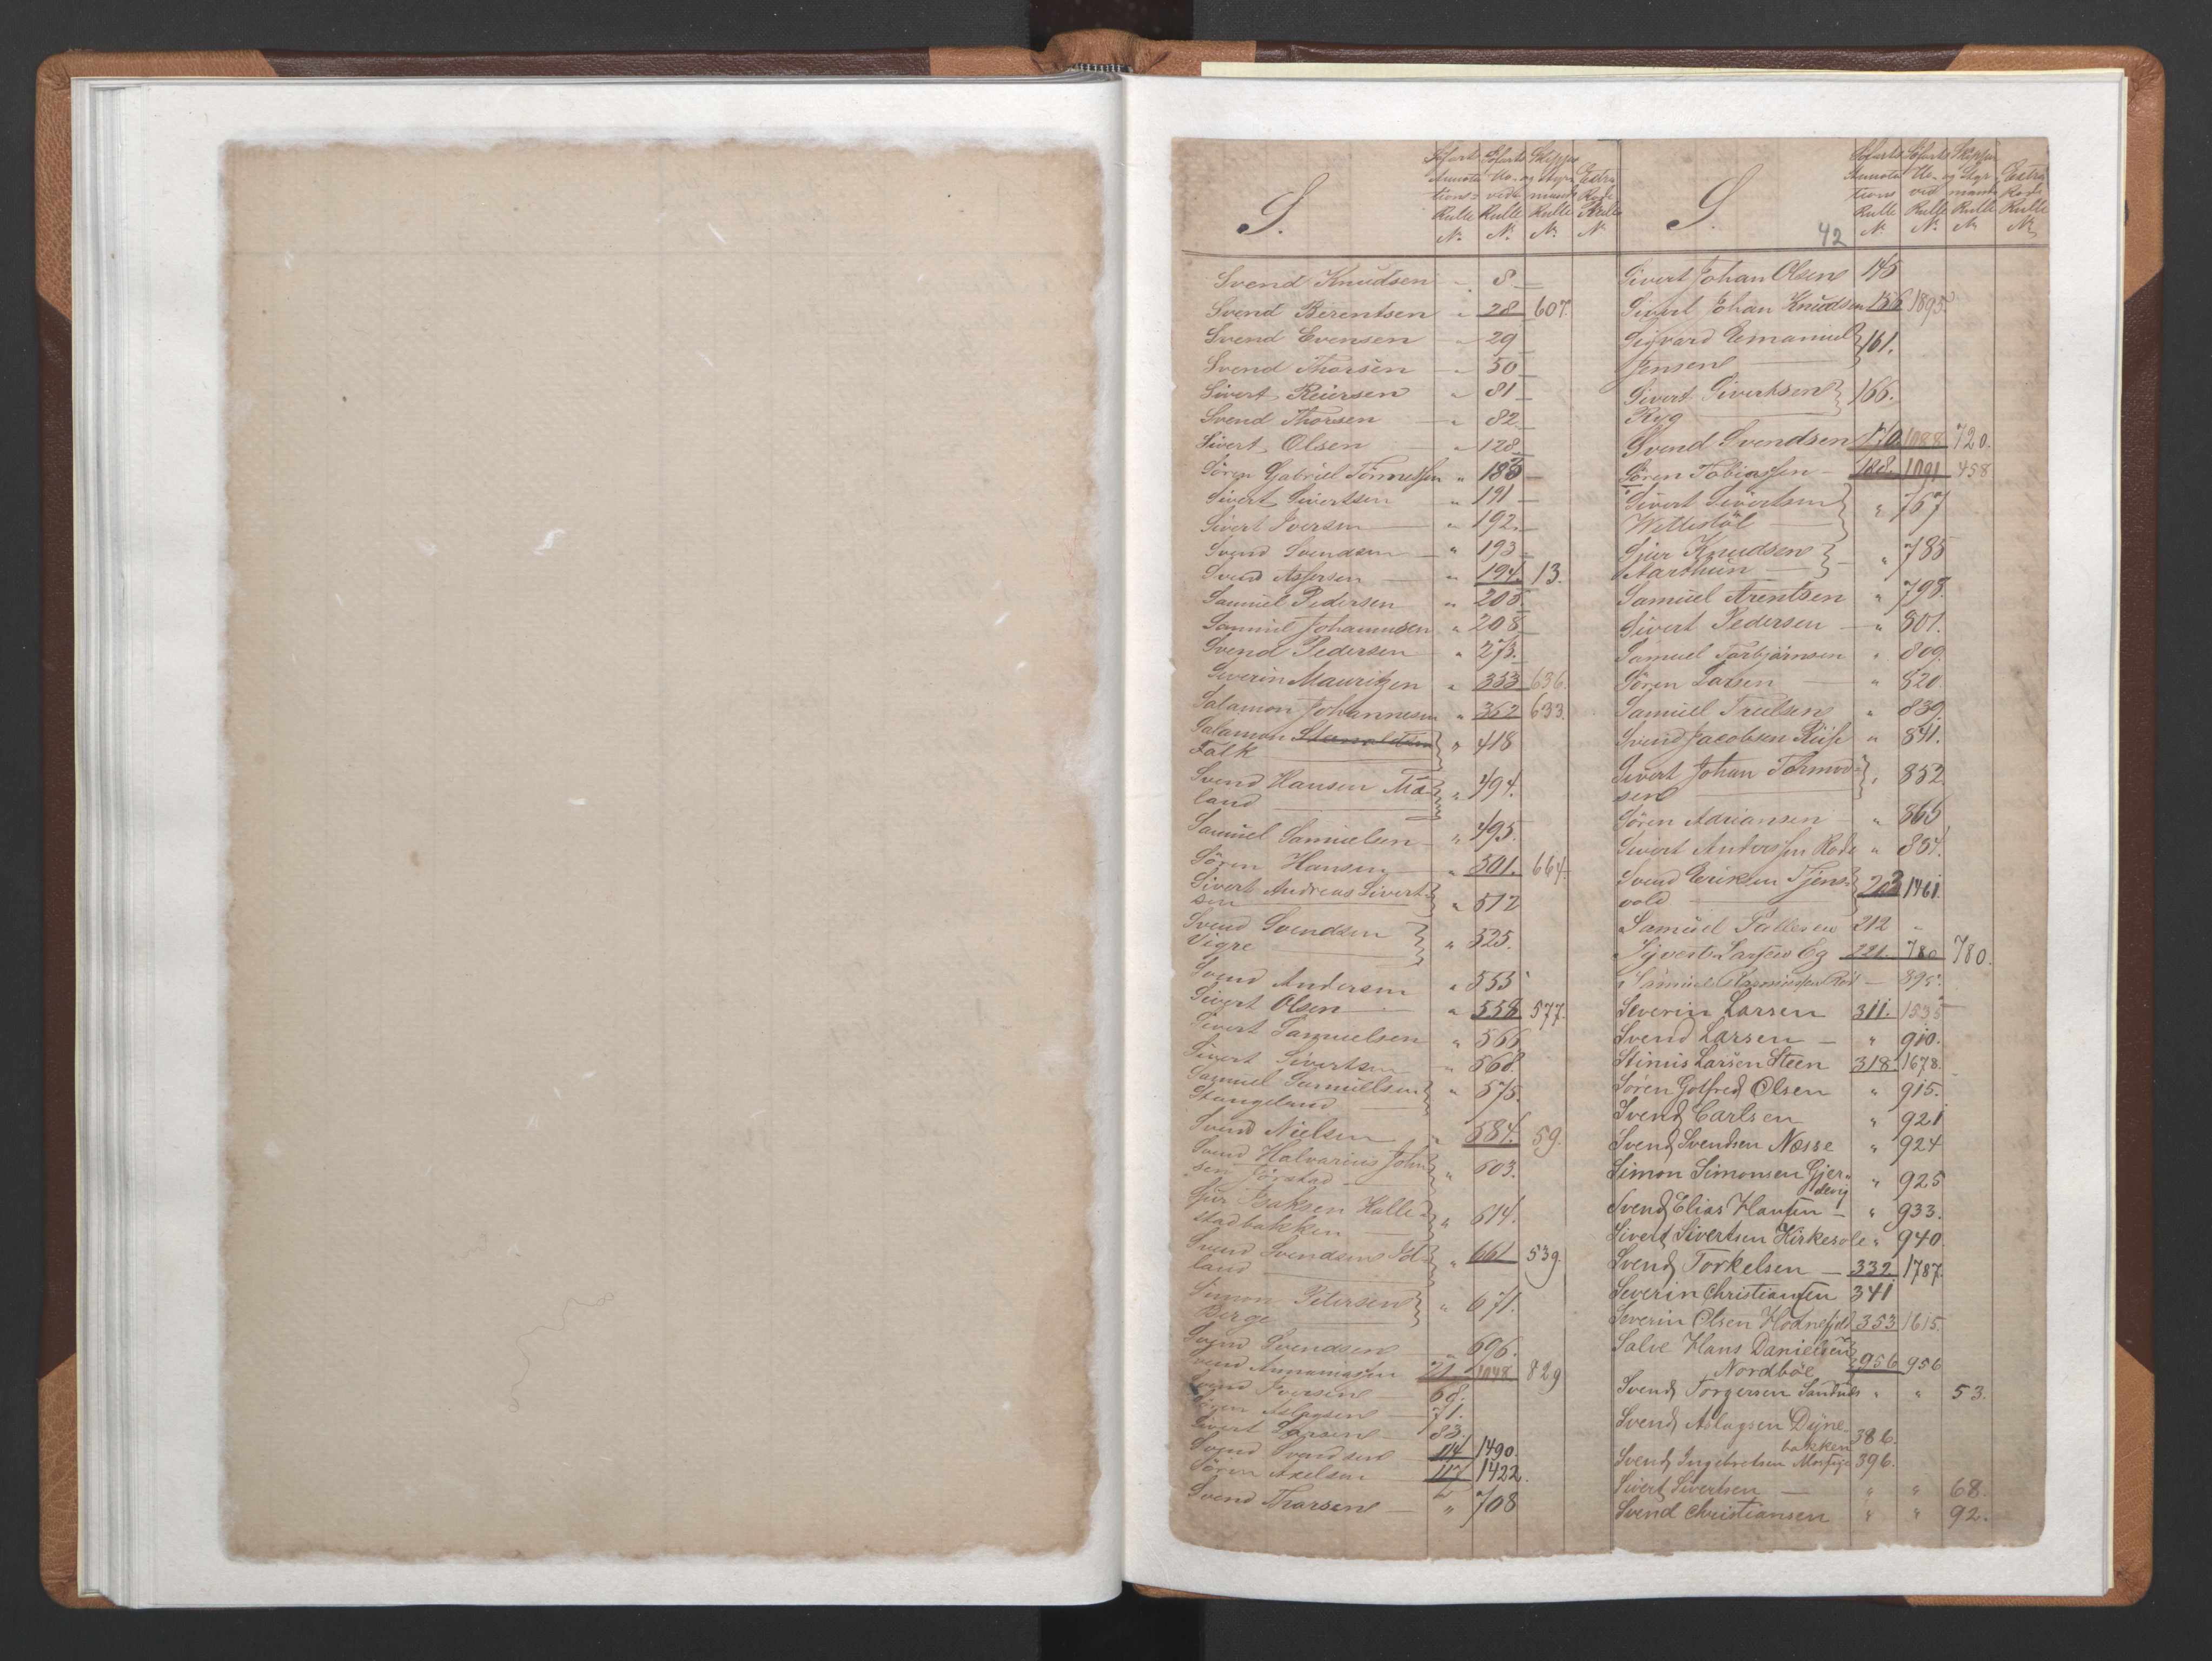 S.
Svend Knudsen " 8
Svend Berentsen " 28 607.
Svend Evensen " 29
Svend Thorsen " 50
Sivert Reiersen " 81
Svend Thorsen " 82
Sivert Olsen " 128
Sören Gabriel Tönnessen " 186
Sivert Sivertsen " 191
Sivert Iversen " 192
Svend Svendsen " 193
Svend Assersen " 194 13.
Samuel Pedersen " 205
Samuel Johannesen " 208
Svend Pedersen " 273.
Severin Mauritzen " 353 636.
Salamon Johannesen " 352 633.
Salamon
Falk " 418
Svend Hansen Mæ-
land " 494.
Samuel Samuelsen " 495.
Sören Hansen " 501. 664.
Sivert Andreas Sivert-
sen " 512
Svend Svendsen
Vigre " 525.
Svend Andersen " 555
Sivert Olsen " 558 577.
Sivert Samuelsen " 566
Sivert Sivertsen " 568.
Samuel Samuelsen
Stangeland " 575.
Svend Nielsen " 584. 59.
Svend Halvarius John-
sen Jörstad " 603.
Sjur Isaksen Halle-
stadbakken " 614.
Svend Svendsen
land " 661 539.
Simon Petersen
Berge " 671.
Svend Svendsen " 696.
Svend Annaniassen 21. 1048. 829
Svend Iversen 68.
Sören Aslagsen 71.
Sivert Larsen 83.
Svend Svendsen 114 1490.
Sören Axelsen 117 1422.
Svend Thorsen " 708
S.
42
Sivert Johan Olsen 145
Sivert Johan Knudsen 156 1895.
Sigvard Emanuel
Jensen 161.
Sivert Sivertsen
Ryg 166.
Svend Svendsen 170. 1088 720.
Sören Tobiassen 188. 1091 458
Sivert Sivertsen
" 767
Sjur Knudsen
Aarthun " 785
Samuel Arentsen " 798.
Sivert Pedersen " 801.
Samuel Torbjörnsen " 809.
Sören Larsen " 820.
Samuel Truelsen " 839.
Svend Jacobsen Riise " 841.
Sivert Johan Tormod-
sen " 852
Sören Adriansen " 865
Sivert Anderssen Rode " 854.
Svend Eriksen Tjens-
vold 203 1461.
Samuel Pallesen 212 "
Syvert Larsen Eg 221. 780 780.
Samuel Rasmussen 895.
Severin Larsen 311. 1535
Svend Larsen " 910.
Stinius Larsen Steen 318 1678.
Sören Gotfred Olsen " 915.
Svend Carlsen " 921
Svend Svendsen Næsse " 924
Simon Simonsen Gjer-
devig " 925
Svend Elias Hansen " 933.
Sivert Sivertsen Kirkesole " 940
Svend Torkelsen 332 1787.
Severin Christiansen 341
Severin Olsen Hodnefjeld 353 1615.
Salve Hans Danielsen
Nordböe 956 956
Svend Torgersen Sandnæs " " 53.
Svend Aslagsen Dyne-
bakken 386.
Svend Ingebretsen 396.
Sivert Sivertsen " " 68.
Svend Christiansen " " 92.